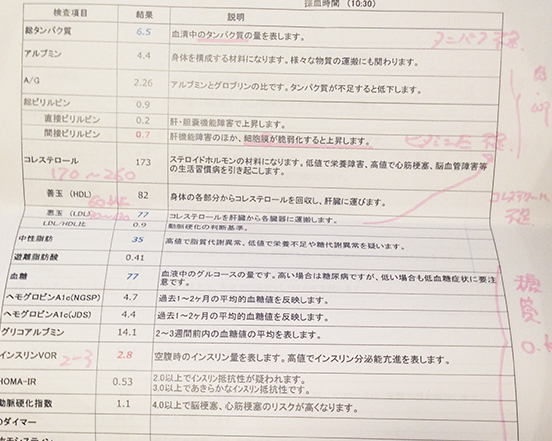 採血時間 (10:30)
検査項目 結果 説明
総タンパク質 6.5 血漬中のタンパク質の量を表します。
タンパク 不足
アルブミン 4.4 身体を構成する材料になります。様々な物質の運搬にも関わります。
A/G 2.26 アルブミンとグロブリンの比です。タンパク質が不足すると低下します。
総ビリルビン 0.9
直接ビリルビン 0.2 肝・胆嚢機能障害で上昇します。
間接ビリルビン 0.7 肝機能障害のほか、細胞膜が脆弱化すると上昇します。
コレステロール 173 ステロイドホルモンの材料になります。低値で栄養障害、高値で心筋梗塞、脳血管障害等
の生活習慣病を引き起こします。
170〜260
善玉 (HDL) 82 身体の各部分からコレステロールを回収し、肝臓に運びます。
コレステロール
不足
悪玉 (LDL) 77 コレステロールを肝臓から各臓器に運搬します。
LDL/HDL比 0.9 動脈硬化の判断基準。
中性脂肪 35 高値で脂質代謝異常、低値で栄養不足や糖代謝異常を疑います。
遊離脂肪酸 0.41
血糖 77 血液中のグルコースの量です。高い場合は糖尿病ですが、低い場合も低血糖症状に要注
意です。
ヘモグロビンA1c(NGSP) 4.7 過去1〜2ヶ月の平均的血糖値を反映します。
ヘモグロビンA1c(JDS) 4.4 過去1〜2ヶ月の平均的血糖値を反映します。
グリコアルブミン 14.1 2〜3週間前内の血糖値の平均を表します。
糖質
インスリンVOR 2-3 2.8 空腹時のインスリン量を表します。高値でインスリン分泌能亢進を表します。
HOMA-IR 0.53 2.0以上でインスリン抵抗性が疑われます。
3.0以上であきらかなインスリン抵抗性です。
動脈硬化指数 1.1 4.0以上で脳梗塞、心筋梗塞のリスクが高くなります。
のダイマー